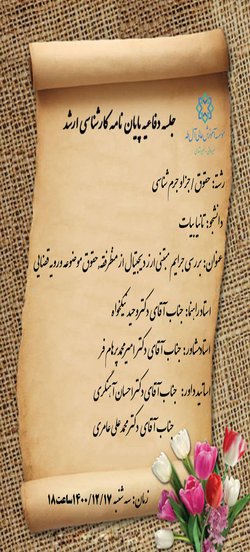 موسسه آموزش عالی آل طه
جلسه دفاعیه پایان نامه کارشناسی ارشد
رشته: حقوق / جزا و جرم شناسی
دانشجو: تانیا بیات
عنوان: بررسی جرایم مبتنی ارز دیجیتال از منظر فقه، حقوق موضوعه و رویه قضایی
استاد راهنما: جناب آقای دکتر وحید نیکخواه
استاد مشاور: جناب آقای دکتر امیرمحمد پرهام فر
اساتید داور: جناب آقای دکتر احسان آهنگری
جناب آقای دکتر محمد علی عامری
زمان: سه شنبه ۱۴۰۰/۱۲/۱۷ ساعت ۱۸